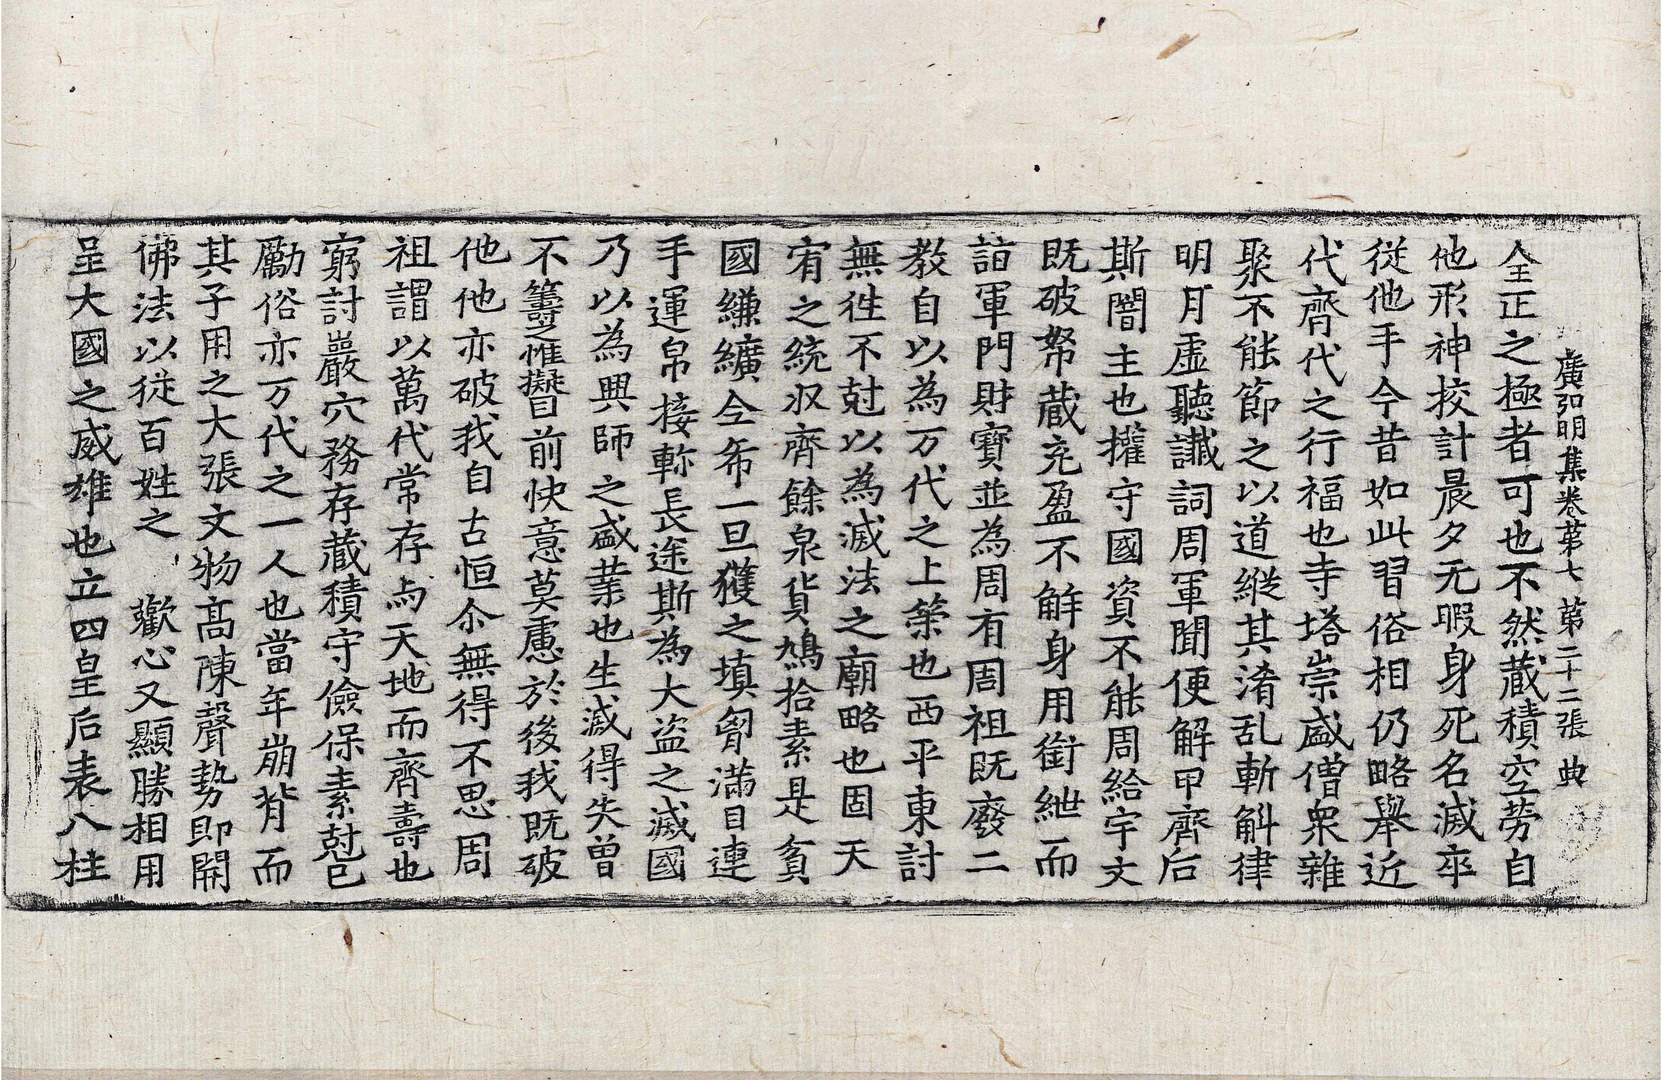 廣弘明集卷第七 第二十二張 典
全正之極者可也不然藏積空勞自
他形神校計晨夕无暇身死名滅卒
從他手今昔如此習俗相仍略舉近
代齊代之行福也寺塔崇盛僧眾雜
聚不能節之以道縱其淆乱斬斛律
明月虛聽讖詞周軍聞便解甲齊后
斯闇主也攉守國資不能周給宇文
既破帑藏充盈不解身用銜紲而
詣軍門財寶並為周有周祖既廢二
教自以為万代之上策也西平東討
無徃不尅以為滅法之廟略也固天
宥之統収齊餘泉貨鳩拾素是貧
國縑纊全希一旦獲之填匈滿目連
手運帛接軫長途斯為大盜之滅國
乃以為興師之盛業也生滅得失曾
不籌之惟擬目前快意莫慮於後我既破
他他亦破我自古恒尒無得不思周
祖謂以萬代常存与天地而齊壽也
窮討巖穴務存藏積守儉保素尅已
勵俗亦万代之一人也當年崩背而
其子用之大張文物髙陳聲勢即開
佛法以從百姓之 歡心又顯勝相用
呈大國之威雄也立四皇后表八柱